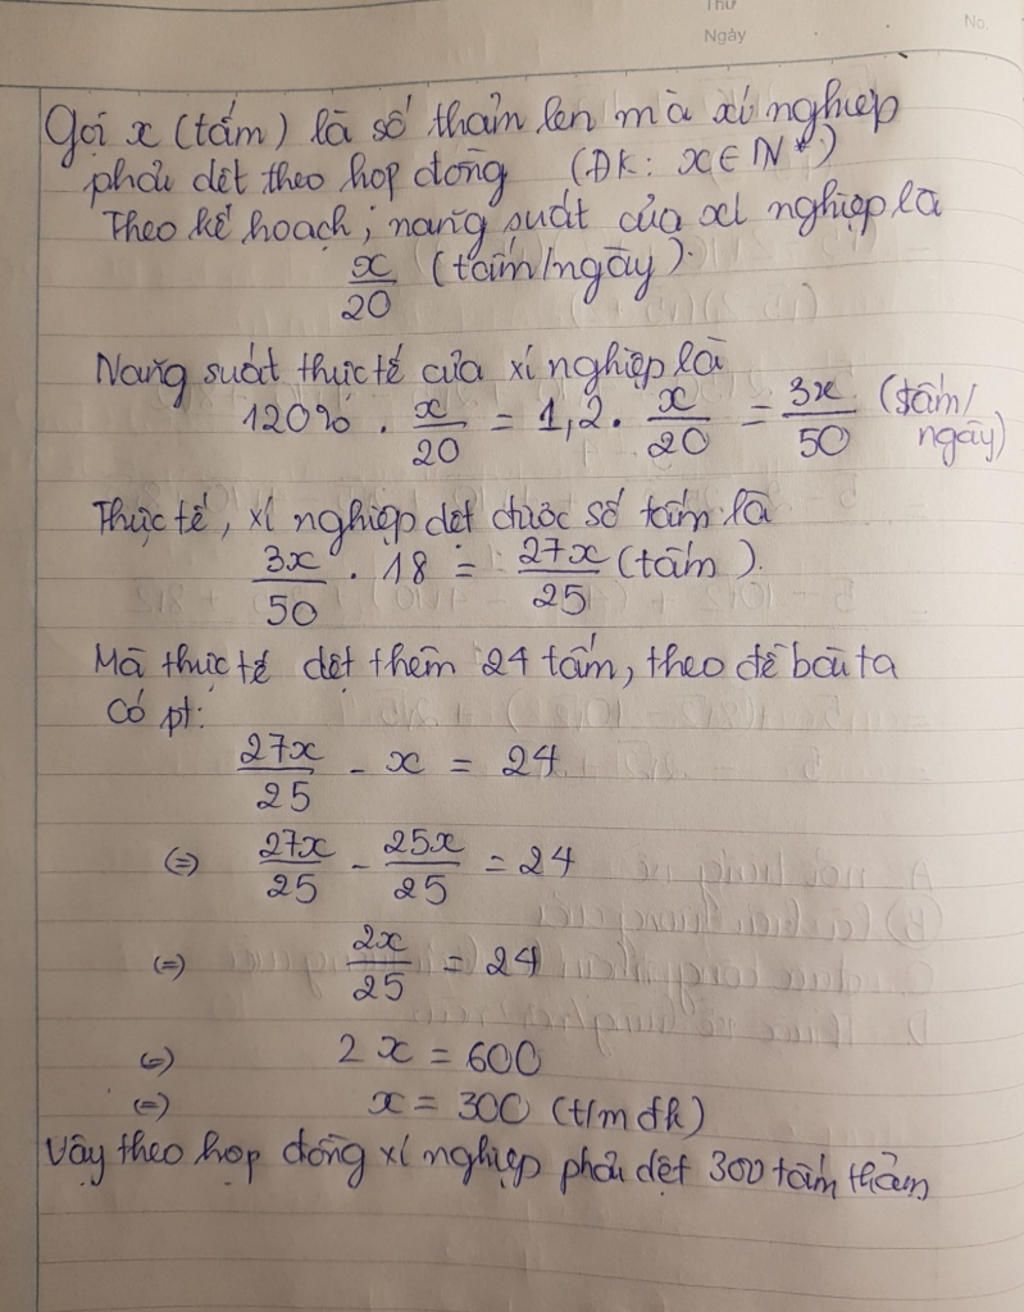 Thứ
Ngày
No.
Gọi x (tấm) là số thảm len mà xí nghiệp
phải dệt theo hợp đồng (ĐK: x ∈ N*)
Theo kế hoạch, năng suất của xí nghiệp là
x/20 (tấm/ngày).
Năng suất thực tế của xí nghiệp là
120% . x/20 = 1,2 . x/20 = 3x/50 (tấm/
ngày)
Thực tế, xí nghiệp dệt được số tấm là
3x/50 . 18 = 27x/25 (tấm).
Mà thực tế dệt thêm 24 tấm, theo đề bài ta
có pt:
27x/25 - x = 24
(=) 27x/25 - 25x/25 = 24
(=) 2x/25 = 24
(=) 2x = 600
(=) x = 300 (t/m đk)
Vậy theo hợp đồng xí nghiệp phải dệt 300 tấm thảm